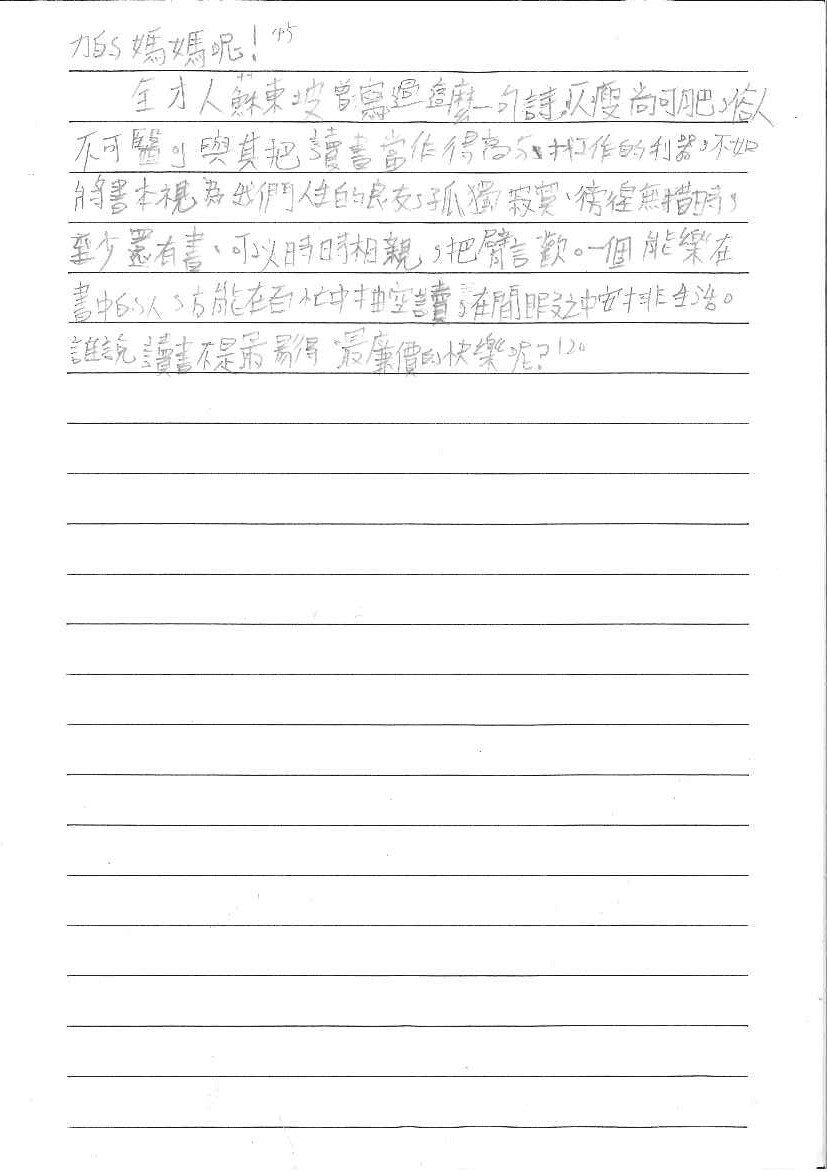 力的媽媽呢！45
全才人蘇東坡曾寫過這麼一句詩，人瘦尚可肥，俗人
不可醫，與其把讀書當作得高分、找工作的利器，不如
將書本視為我們人生的良友，孤獨寂寞、徬徨無措時，
至少還有書、可以時時相親，把臂言歡。一個能樂在
書中的人，方能在百忙中抽空讀，在閒暇之中安排生活。
誰說讀書不是最易得 最廉價的快樂呢？120